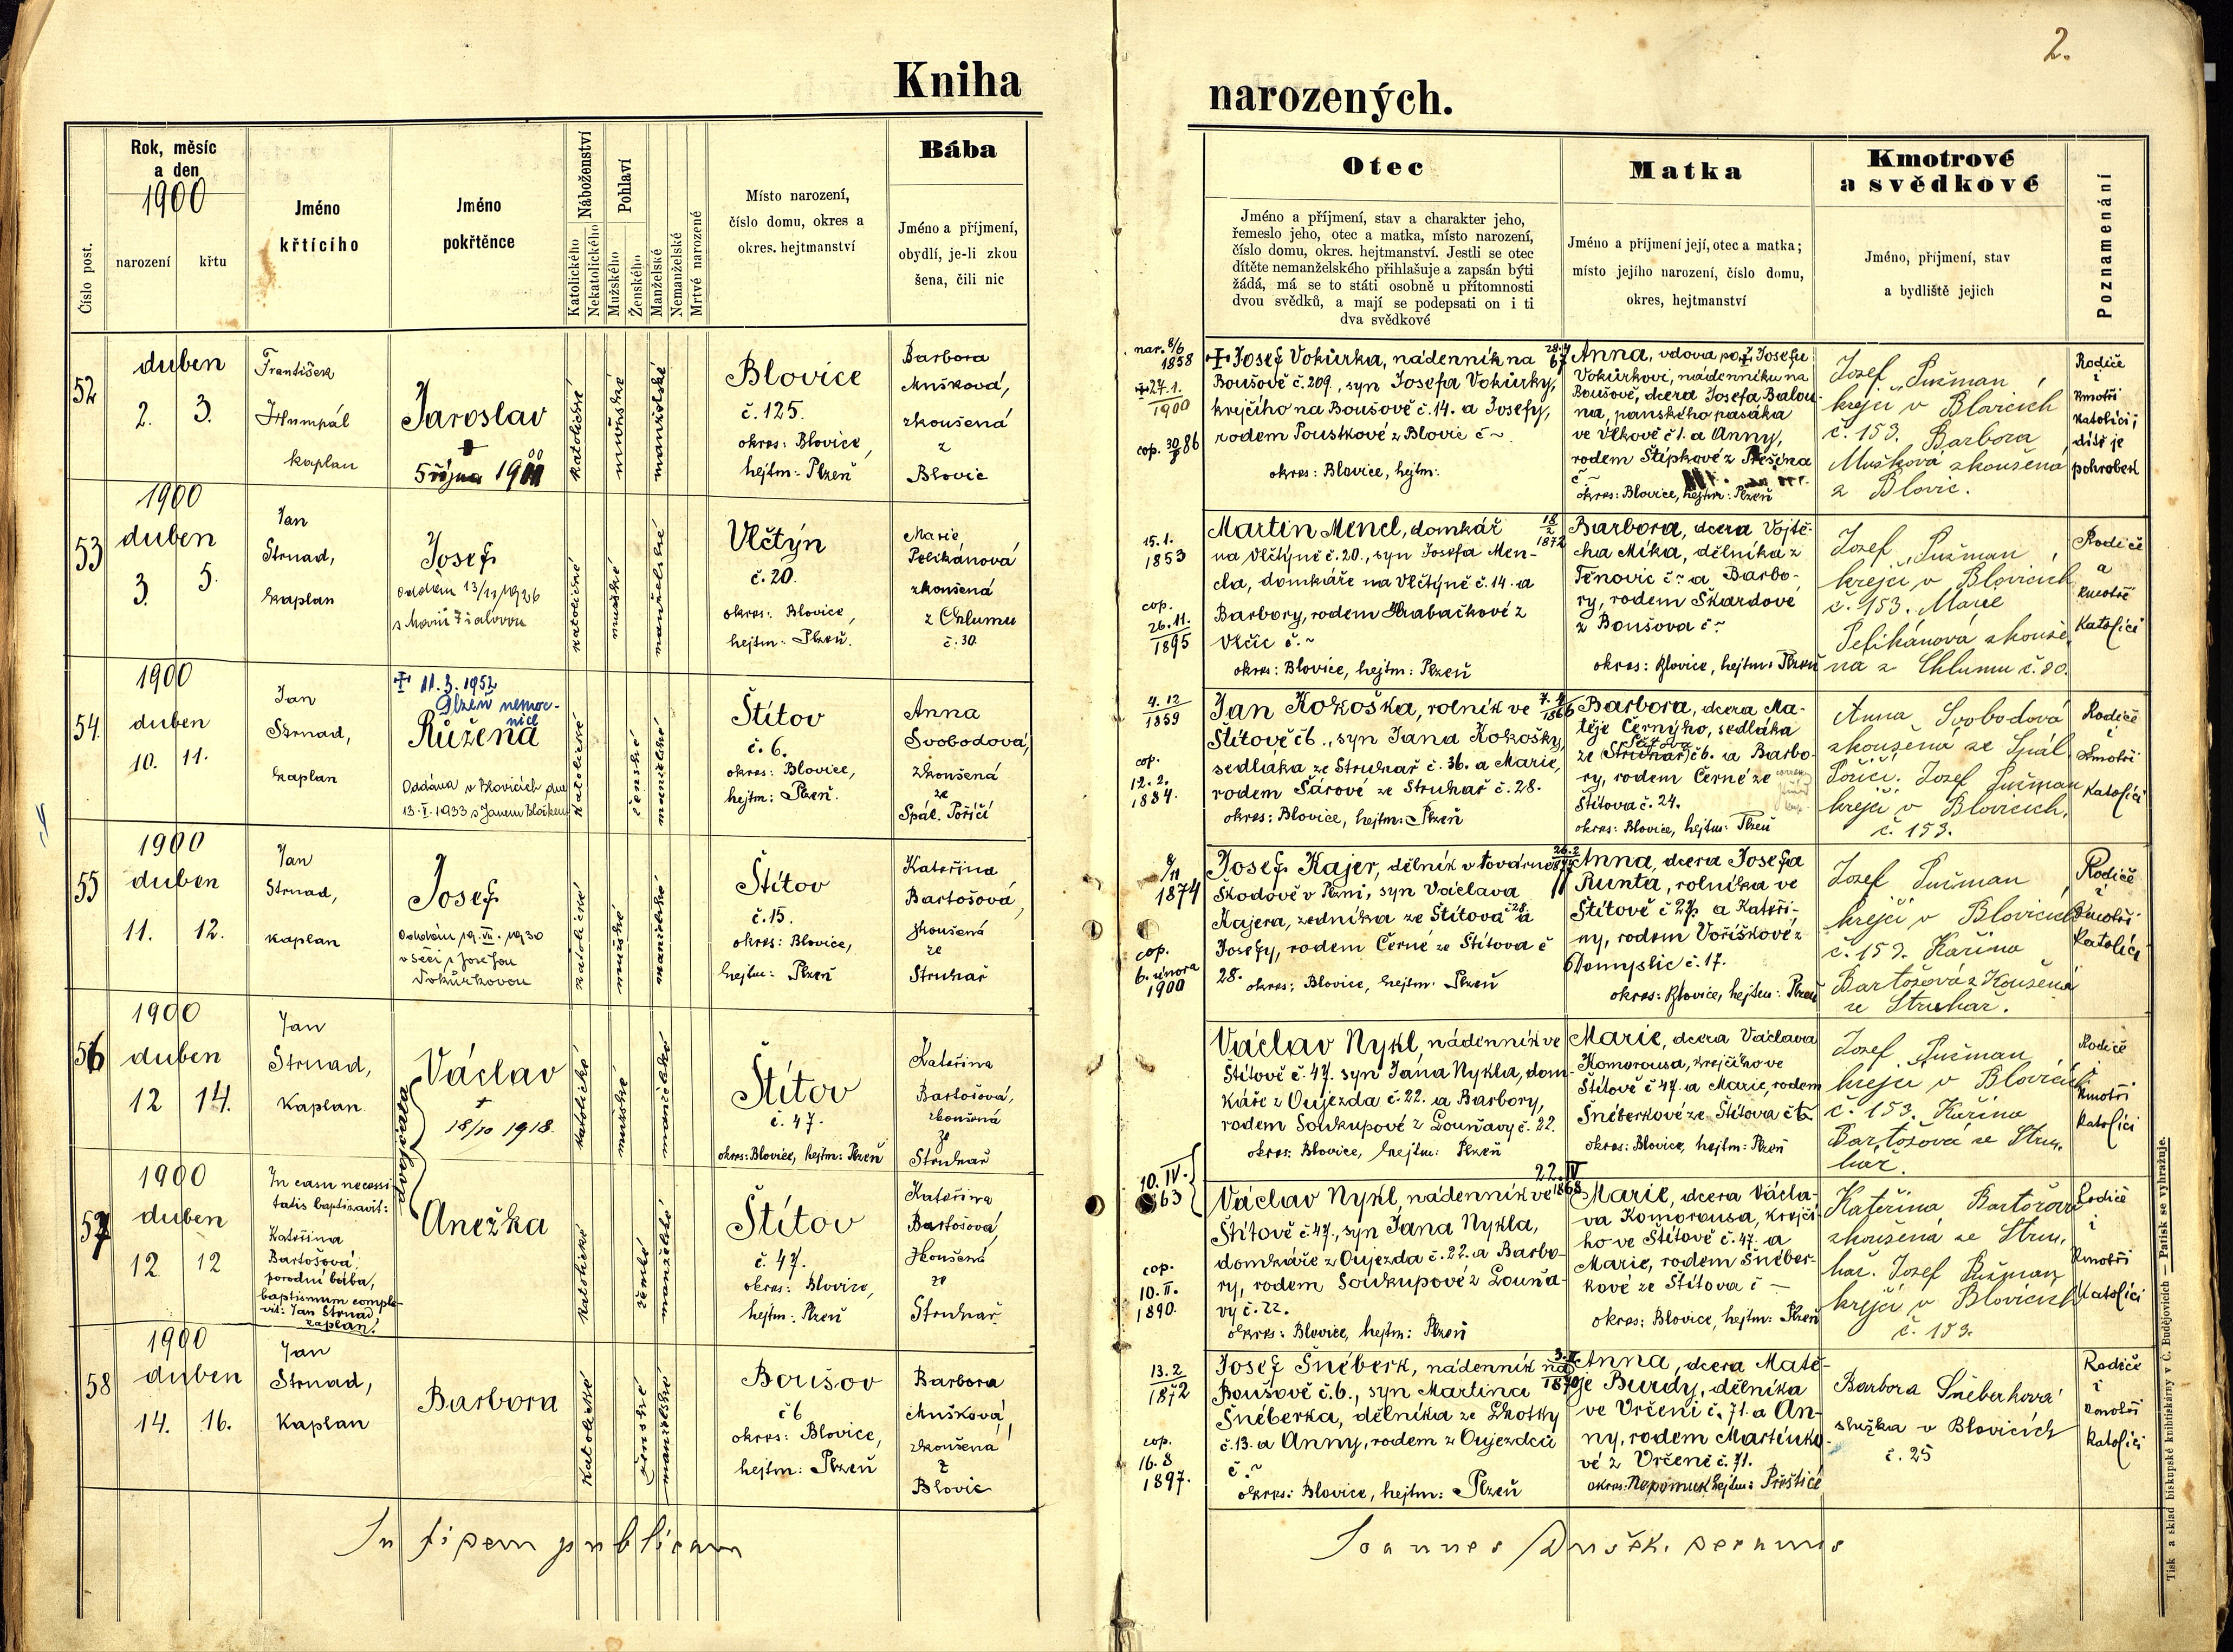 2.
Kniha narozených.
Číslo post.
Rok, měsíc
a den
1900
narození
křtu
Jméno
křtícího
Jméno
pokřtěnce
Náboženství
Katolického
Nekatolického
Pohlaví
Mužského
Ženského
Manželské
Nemanželské
Mrtvé narozené
Místo narození,
číslo domu, okres a
okres. hejtmanství
Bába
Jméno a příjmení,
obydlí, je-li zkou
šena, čili nic
Otec
Jméno a příjmení, stav a charakter jeho,
řemeslo jeho, otec a matka, místo narození,
číslo domu, okres. hejtmanství. Jestli se otec
dítěte nemanželského přihlašuje a zapsán býti
žádá, má se to státi osobně u přítomnosti
dvou svědků, a mají se podepsati on i ti
dva svědkové
Matka
Jméno a příjmení její, otec a matka;
místo jejího narození, číslo domu,
okres, hejtmanství
Kmotrové
a svědkové
Jméno, příjmení, stav
a bydliště jejich
Poznamenání
52
duben
2. 3.
František
Humpál
kaplan
Jaroslav
+
5 října 1900
katolické
mužské
manželské
Blovice
č. 125.
okres: Blovice,
hejtm: Plzeň
Barbora
Mušková,
zkoušená
z
Blovic
nar. 8/6
1858
+27.1.
1900
cop. 30/8 86
+ Josef Vokůrka, nádenník na
Boušově č. 209., syn Josefa Vokůrky,
krejčího na Boušově č. 14. a Josefy,
rodem Poustkové z Blovic č ~.
okres: Blovice, hejtm:
Anna, vdova po + Josefu
Vokůrkovi, nádenníku na
Boušově, dcera Josefa Balou-
na, panského pasáka
ve Vlkově č 1. a Anny,
rodem Štípkové z
č ~
okres: Blovice, hejtm: Plzeň
Josef Pušman,
krejčí v Blovicích
č. 153. Barbora
Mušková zkoušená
z Blovic.
Rodiče
i
kmotři
katolíci;
dítě je
pohrobek
53
1900
duben
3. 5.
Jan
Strnad,
kaplan
Josef
oddán 13/11 1926
s Marií Fialovou
katolické
mužské
manželské
Vlčtýn
č. 20.
okres: Blovice,
hejtm: Plzeň.
Marie
Pelikánová
zkoušená
z Chlumu
č. 30
15.1.
1853
cop.
26.11.
1895
Martin Mencl, domkář
na Vlčtýně č. 20., syn Josefa Men-
cla, domkáře na Vlčtýně č. 14. a
Barbory, rodem Hrabačkové z
Vlčic č. ~
okres: Blovice, hejtm: Plzeň
18
2
1872
Barbora, dcera Vojtě-
cha Míka, dělníka z
Těnovic č ~ a Barbo-
ry, rodem Škardové
z Boušova č ~
okres: Blovice, hejtm: Plzeň
Josef Pušman,
krejčí v Blovicích
č. 153. Marie
Pelikánová zkouše
na z Chlumu č. 30.
Rodiče
a
kmotři
Katolíci
54.
1900
duben
10. 11.
Jan
Strnad,
kaplan
+ 11.3.1952
Plzeň nemoc-
nice
Růžena
Oddána v Blovicích dne
13. I. 1933 s Janem
katolické
ženské
manželské
Štítov
č. 6.
okres: Blovice,
hejtm: Plzeň.
Anna
Svobodová,
zkoušená
ze
Spál. Poříčí
4.12
1859
cop.
12.2.
1884.
Jan Kokoška, rolník ve
Štítově č 6., syn Jana Kokošky,
sedláka ze Struhař č. 36. a Marie,
rodem Šárové ze Struhař č. 28.
okres: Blovice, hejtm: Plzeň
7.4
1866
Barbora, dcera Ma-
těje Černýho, sedláka
ze Štítova č 6. a Barbo-
ry, rodem Černé ze
Štítova č. 24.
okres: Blovice, hejtm: Plzeň
Anna Svobodová
zkoušená ze Spál.
Poříčí. Josef Pušman
krejčí v Blovicích,
č. 153.
Rodiče
i
kmotři
katolíci
55
1900
duben
11. 12.
Jan
Strnad,
kaplan
Josef
Oddán 19. VII. 1930
v Seči s Josefou
Vokůrkovou
katolické
mužské
manželské
Štítov
č. 15.
okres: Blovice,
hejtm: Plzeň
Kateřina
Bartošová,
zkoušená
ze
Struhař
8/11
1874
cop.
6. února
1900
Josef Kajer, dělník v továrně
Škodově v Plzni, syn Václava
Kajera, zedníka ze Štítova č 28 a
Josefy, rodem Černé ze Štítova č
28. okres: Blovice, hejtm: Plzeň
26.2
Anna, dcera Josefa
Runta, rolníka ve
Štítově č 27. a Kateři-
ny, rodem Voříškové z
Domyslic č. 17.
okres: Blovice, hejtm: Plzeň
Josef Pušman,
krejčí v Blovicích
č. 153. Kařina
Bartošová zkoušená
ze Struhař.
Rodiče
i
kmotři
katolíci
56
1900
duben
12 14.
Jan
Strnad,
kaplan
dvojčata
Václav
+
18/10 1918.
katolické
mužské
manželské
Štítov
č. 47.
okres: Blovice, hejtm: Plzeň
Kateřina
Bartošová,
zkoušená
ze
Struhař
Václav Nykl, nádenník ve
Štítově č. 47. syn Jana Nykla, dom-
káře z Oujezda č. 22. a Barbory,
rodem Soukupové z Louňavy č. 22.
okres: Blovice, hejtm: Plzeň
Marie, dcera Václava
Komorousa, krejčího ve
Štítově č 47. a Marie, rodem
Šnéberkové ze Štítova č
okres: Blovice, hejtm: Plzeň
Josef Pušman,
krejčí v Blovicích
č. 153. Kařina
Bartošová ze Stru,
hař.
Rodiče
i
kmotři
katolíci
57
1900
duben
12 12
In casu necessi-
tatis baptizavit:
Kateřina
Bartošová,
porodní bába,
baptismum comple-
vit: Jan Strnad
kaplan.
Anežka
katolické
ženské
manželské
Štítov
č. 47.
okres: Blovice,
hejtm: Plzeň
Kateřina
Bartošová,
zkoušená
ze
Struhař
10. IV.
63
cop.
10. II.
1890.
Václav Nykl, nádenník ve
Štítově č. 47., syn Jana Nykla,
domkáře z Oujezda č. 22. a Barbo-
ry, rodem Soukupové z Louňa-
vy č. 22.
okres: Blovice, hejtm: Plzeň
22. IV
1868
Marie, dcera Václa-
va Komorousa, krejčí-
ho ve Štítově č. 47. a
Marie, rodem Šnéber-
kové ze Štítova č —
okres: Blovice, hejtm: Plzeň
Kateřina Bartošová
zkoušená ze Stru,
hař. Josef Pušman
krejčí v Blovicích
č. 153.
Rodiče
i
kmotři
katolíci
58
1900
duben
14. 16.
Jan
Strnad,
kaplan
Barbora
katolické
ženské
manželské
Boušov
č 6
okres: Blovice,
hejtm: Plzeň
Barbora
Mušková,
zkoušená
z
Blovic
13.2
1872
cop.
16.8
1897.
Josef Šnéberk, nádenník na
Boušově č. 6., syn Martina
Šnéberka, dělníka ze Lhotky
č. 13. a Anny, rodem z Oujezdců
č. ~
okres: Blovice, hejtm: Plzeň
1870
Anna, dcera Matě-
je Burdy, dělníka
ve Vrčeni č. 71. a An-
ny, rodem Martínko-
vé z Vrčeně č. 71.
okres: Nepomuk hejtm: Přeštice
Barbora Šnéberková
služka v Blovicích
č. 25
Rodiče
i
kmotři
katolíci
In fidem publicam
Joannes Dušek, parochus
Tisk a sklad biskupské knihtiskárny v Č. Budějovicích — Patisk se vyhražuje.